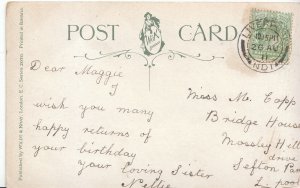 POST CARD
Published by WILDT & KRAY, London, E.C. Series
Printed in
Dear Maggie
I
wish you many
happy returns of
your birthday
your loving Sister
Nellie
Miss M. Capp
Bridge House
Mossley Hill
drive
Sefton Park
L.pool
26 AU